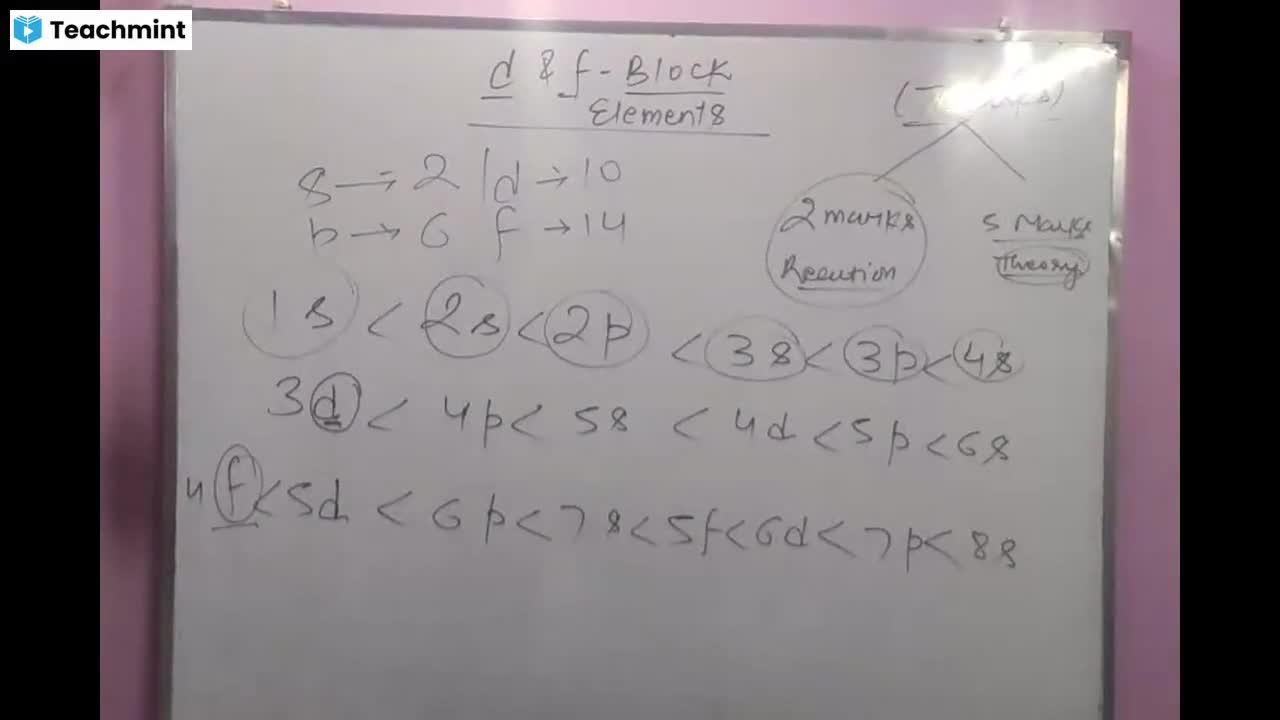 Teachmint
d & f - Block
Elements
s → 2 | d → 10
p → 6 f → 14
2 marks
Reaution
5 Marks
Theory
1s < 2s < 2p < 3s < 3p < 4s
3d < 4p < 5s < 4d < 5p < 6s
4f < 5d < 6p < 7s < 5f < 6d < 7p < 8s